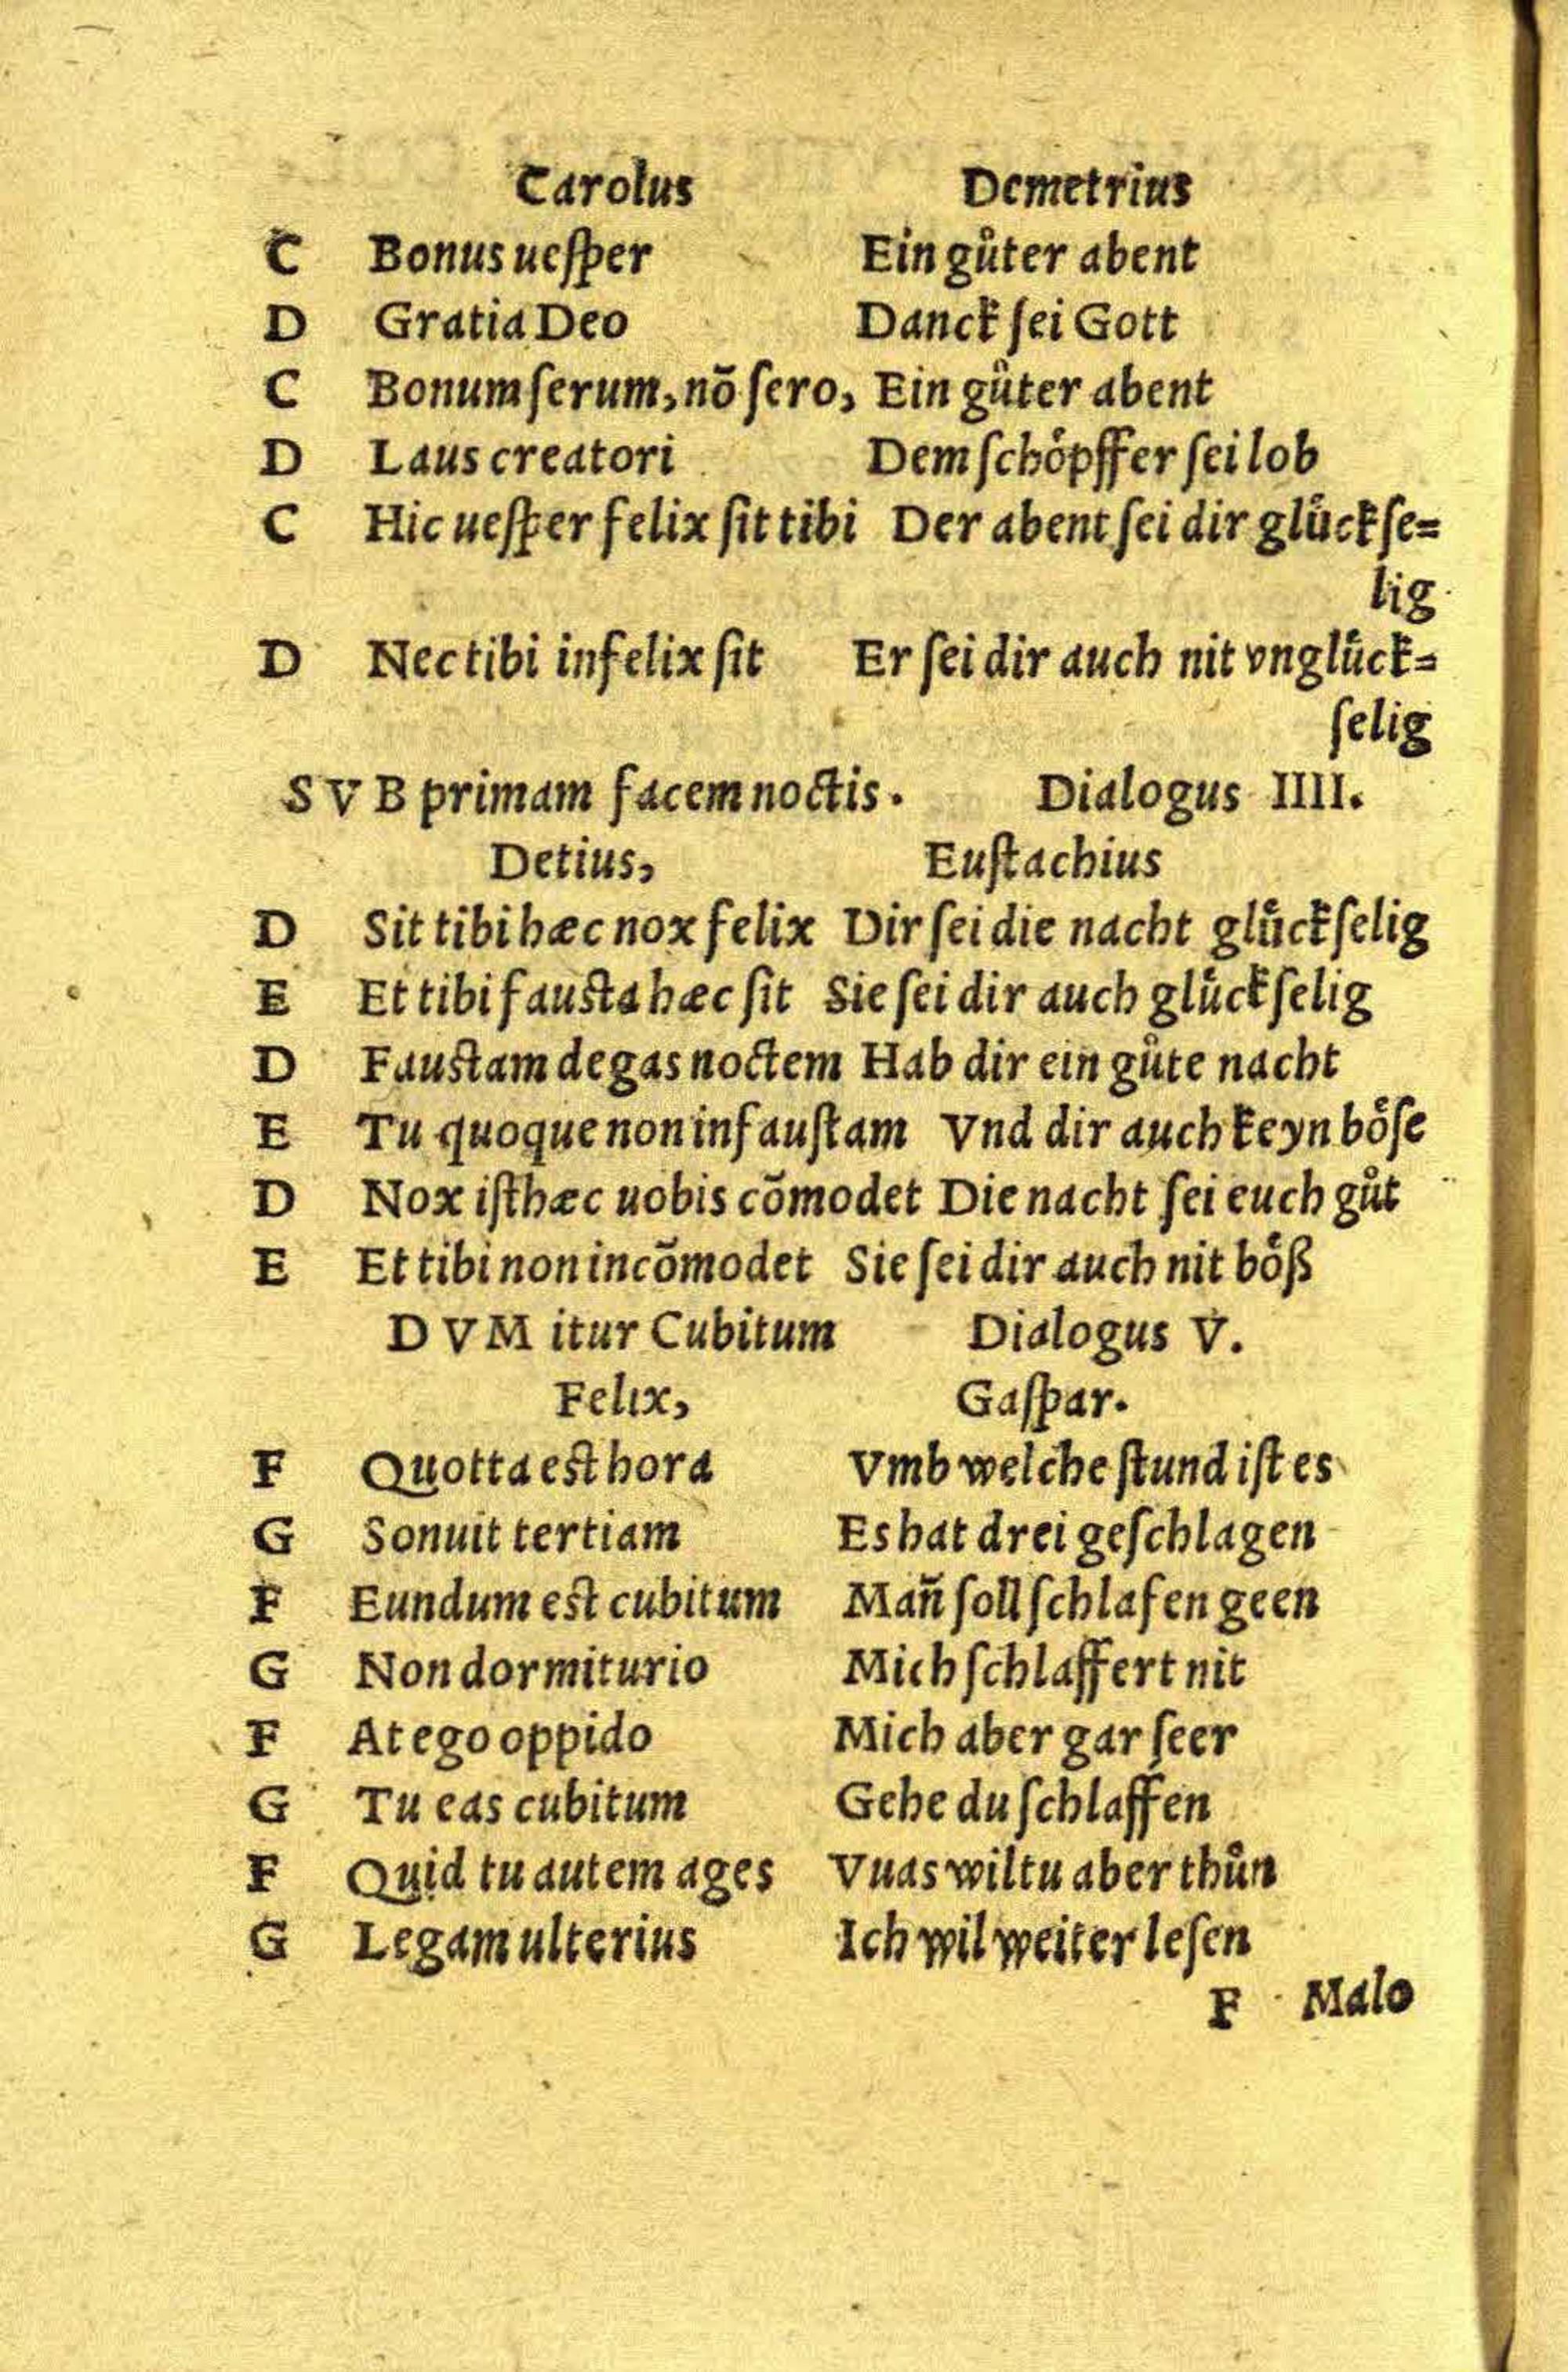 Carolus Demetrius
C Bonus ueſper Ein gůter abent
D Gratia Deo Danck ſei Gott
C Bonum ſerum, nõ ſero, Ein gůter abent
D Laus creatori Dem ſchoͤpffer ſei lob
C Hic ueſper felix ſit tibi Der abent ſei dir gluͤckſe=
lig
D Nec tibi infelix ſit Er ſei dir auch nit vngluͤck=
ſelig
SVB primam facem noctis. Dialogus IIII.
Detius, Euſtachius
D Sit tibi hæc nox felix Dir ſei die nacht gluͤckſelig
E Et tibi fauſta hæc ſit Sie ſei dir auch gluͤckſelig
D Fauſtam degas noctem Hab dir ein gůte nacht
E Tu quoque non infauſtam Vnd dir auch keyn boͤſe
D Nox iſthæc uobis cõmodet Die nacht ſei euch gůt
E Et tibi non incõmodet Sie ſei dir auch nit boͤß
DVM itur Cubitum Dialogus V.
Felix, Gaſpar.
F Quotta eſt hora Vmb welche ſtund iſt es
G Sonuit tertiam Es hat drei geſchlagen
F Eundum eſt cubitum Mañ ſoll ſchlafen geen
G Non dormiturio Mich ſchlaffert nit
F At ego oppido Mich aber gar ſeer
G Tu eas cubitum Gehe du ſchlaffen
F Quid tu autem ages Vuas wiltu aber thůn
G Legam ulterius Ich wil weiter leſen
F Malo